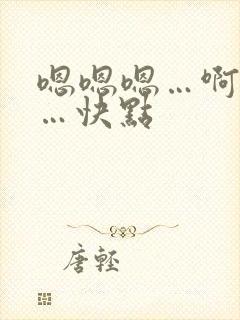 嗯嗯嗯…啊
…快點
唐輕